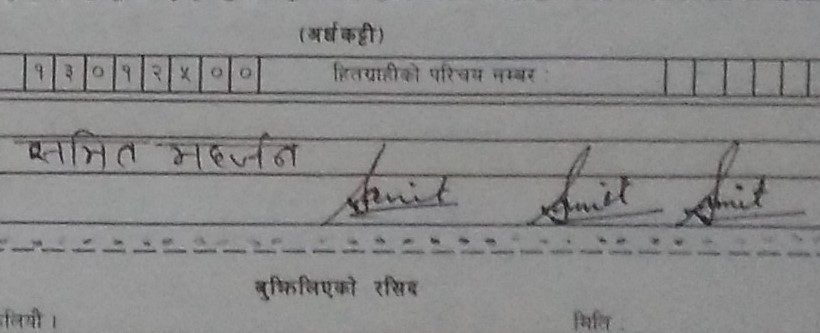 (अर्धकट्टी)
१ ३ ० १ २ ५ ० ० हितग्राहीको परिचय नम्बर :
समित महर्जन Samit Samit Samit
बुझिलिएको रसिद
लियौं । मिति :